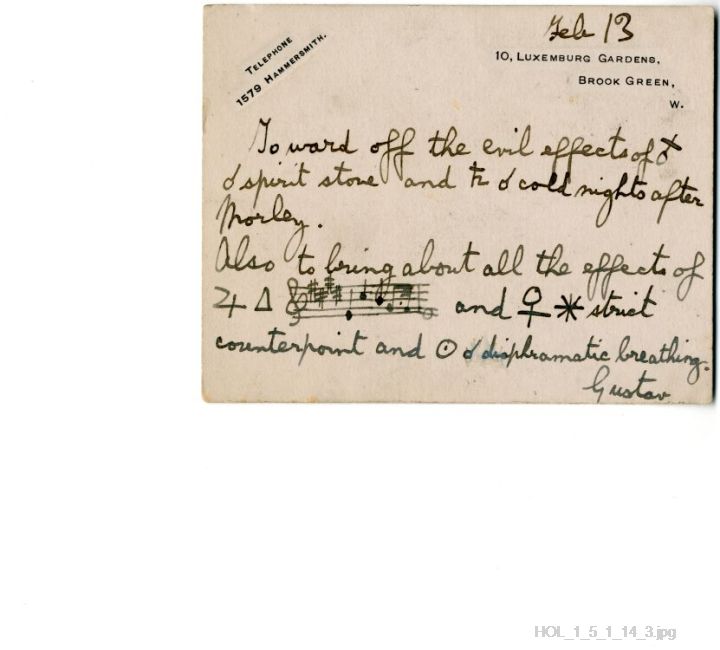 TELEPHONE
1579 HAMMERSMITH.
Feb 13
10, LUXEMBURG GARDENS,
BROOK GREEN,
W.
To ward off the evil effects of ♂
☌ spirit stove and ♄ ☌ cold nights after
Morley.
Also to bring about all the effects of
♃ △ and ♀ ⚹ strict
counterpoint and ☉ ☌ diaphramatic breathing.
Gustav
HOL_1_5_1_14_3.jpg